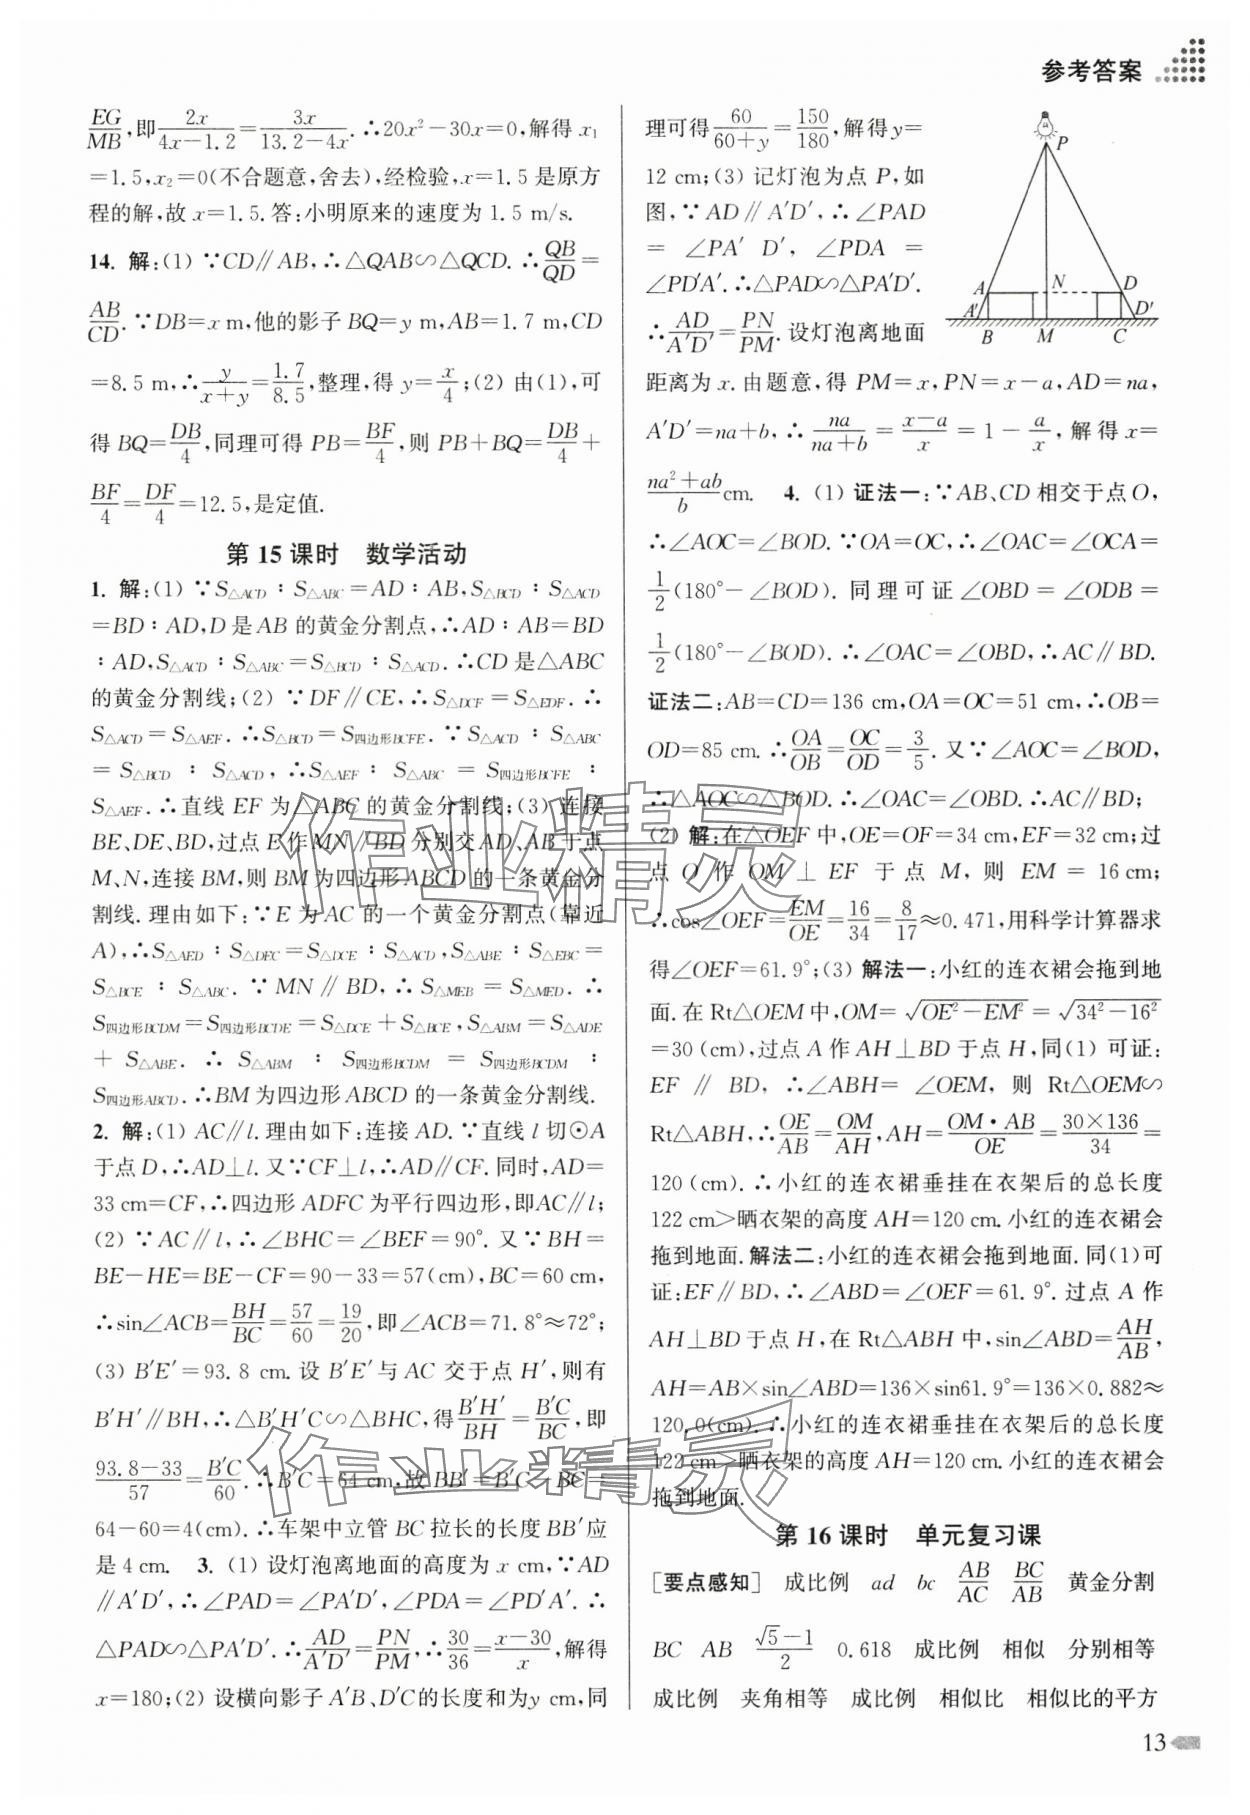 参考答案
EG/MB,即2x/(4x−1.2)=3x/(13.2−4x).∴20x²−30x=0,解得 x₁
=1.5,x₂=0(不合题意,舍去),经检验,x=1.5 是原方
程的解,故 x=1.5.答:小明原来的速度为 1.5 m/s.
14. 解:(1) ∵CD∥AB,∴△QAB∽△QCD.∴QB/QD=
AB/CD.∵DB=x m,他的影子 BQ=y m,AB=1.7 m,CD
=8.5 m,∴y/(x+y)=1.7/8.5,整理,得 y=x/4;(2) 由(1),可
得 BQ=DB/4,同理可得 PB=BF/4,则 PB+BQ=DB/4+
BF/4=DF/4=12.5,是定值.
第 15 课时 数学活动
1. 解:(1) ∵S△ACD∶S△ABC=AD∶AB,S△BCD∶S△ACD
=BD∶AD,D 是 AB 的黄金分割点,∴AD∶AB=BD
∶AD,S△ACD∶S△ABC=S△BCD∶S△ACD.∴CD 是△ABC
的黄金分割线;(2) ∵DF∥CE,∴S△DCF=S△EDF.∴
S△ACD=S△AEF.∴S△BCD=S四边形BCFE.∵S△ACD∶S△ABC
=S△BCD∶S△ACD,∴S△AEF∶S△ABC=S四边形BCFE∶
S△AEF.∴直线 EF 为△ABC 的黄金分割线;(3) 连接
BE、DE、BD,过点 E 作 MN∥BD 分别交 AD、AB 于点
M、N,连接 BM,则 BM 为四边形 ABCD 的一条黄金分
割线.理由如下:∵E 为 AC 的一个黄金分割点(靠近
A),∴S△AED∶S△DEC=S△DCE∶S△ACD,S△ABE∶S△EBC=
S△BCE∶S△ABC.∵MN∥BD,∴S△MEB=S△MED.∴
S四边形BCDM=S四边形BCDE=S△DCE+S△BCE,S△ABM=S△ADE
+S△ABE.∴S△ABM∶S四边形BCDM=S四边形BCDM∶
S四边形ABCD.∴BM 为四边形 ABCD 的一条黄金分割线.
2. 解:(1) AC∥l.理由如下:连接 AD.∵直线 l 切⊙A
于点 D,∴AD⊥l.又∵CF⊥l,∴AD∥CF.同时,AD=
33 cm=CF,∴四边形 ADFC 为平行四边形,即AC∥l;
(2) ∵AC∥l,∴∠BHC=∠BEF=90°.又∵BH=
BE−HE=BE−CF=90−33=57(cm),BC=60 cm,
∴sin∠ACB=BH/BC=57/60=19/20,即∠ACB=71.8°≈72°;
(3) B′E′=93.8 cm.设 B′E′与 AC 交于点 H′,则有
B′H′∥BH,∴△B′H′C∽△BHC,得B′H′/BH=B′C/BC,即
(93.8−33)/57=B′C/60.∴B′C=64 cm,故 BB′=B′C−BC=
64−60=4(cm).∴车架中立管 BC 拉长的长度 BB′应
是 4 cm. 3. (1) 设灯泡离地面的高度为 x cm,∵AD
∥A′D′,∴∠PAD=∠PA′D′,∠PDA=∠PD′A′.∴
△PAD∽△PA′D′.∴AD/A′D′=PN/PM,∴30/36=(x−30)/x,解得
x=180;(2) 设横向影子 A′B、D′C 的长度和为y cm,同
理可得60/(60+y)=150/180,解得 y=
12 cm;(3) 记灯泡为点 P,如
图,∵AD∥A′D′,∴∠PAD
=∠PA′D′,∠PDA=
∠PD′A′.∴△PAD∽△PA′D′.
∴AD/A′D′=PN/PM.设灯泡离地面
P
A N D
A′ D′
B M C
距离为 x.由题意,得 PM=x,PN=x−a,AD=na,
A′D′=na+b,∴na/(na+b)=(x−a)/x=1−a/x,解得 x=
(na²+ab)/b cm. 4. (1) 证法一:∵AB、CD 相交于点 O,
∴∠AOC=∠BOD.∵OA=OC,∴∠OAC=∠OCA=
1/2(180°−∠BOD).同理可证∠OBD=∠ODB=
1/2(180°−∠BOD).∴∠OAC=∠OBD,∴AC∥BD.
证法二:AB=CD=136 cm,OA=OC=51 cm,∴OB=
OD=85 cm.∴OA/OB=OC/OD=3/5.又∵∠AOC=∠BOD,
∴△AOC∽△BOD.∴∠OAC=∠OBD.∴AC∥BD;
(2) 解:在△OEF 中,OE=OF=34 cm,EF=32 cm;过
点 O 作 OM⊥EF 于点 M,则 EM=16 cm;
∴cos∠OEF=EM/OE=16/34=8/17≈0.471,用科学计算器求
得∠OEF=61.9°;(3) 解法一:小红的连衣裙会拖到地
面.在 Rt△OEM 中,OM=√(OE²−EM²)=√(34²−16²)
=30(cm),过点 A 作 AH⊥BD 于点 H,同(1)可证:
EF∥BD,∴∠ABH=∠OEM,则 Rt△OEM∽
Rt△ABH,∴OE/AB=OM/AH,AH=OM·AB/OE=30×136/34=
120(cm).∴小红的连衣裙垂挂在衣架后的总长度
122 cm>晒衣架的高度 AH=120 cm.小红的连衣裙会
拖到地面.解法二:小红的连衣裙会拖到地面.同(1)可
证:EF∥BD,∴∠ABD=∠OEF=61.9°.过点 A 作
AH⊥BD 于点 H,在 Rt△ABH 中,sin∠ABD=AH/AB,
AH=AB×sin∠ABD=136×sin61.9°=136×0.882≈
120.0(cm).∴小红的连衣裙垂挂在衣架后的总长度
122 cm>晒衣架的高度 AH=120 cm.小红的连衣裙会
拖到地面.
第 16 课时 单元复习课
[要点感知] 成比例 ad bc AB/AC BC/AB 黄金分割
BC AB (√5−1)/2 0.618 成比例 相似 分别相等
成比例 夹角相等 成比例 相似比 相似比的平方
13
作业精灵
作业精灵